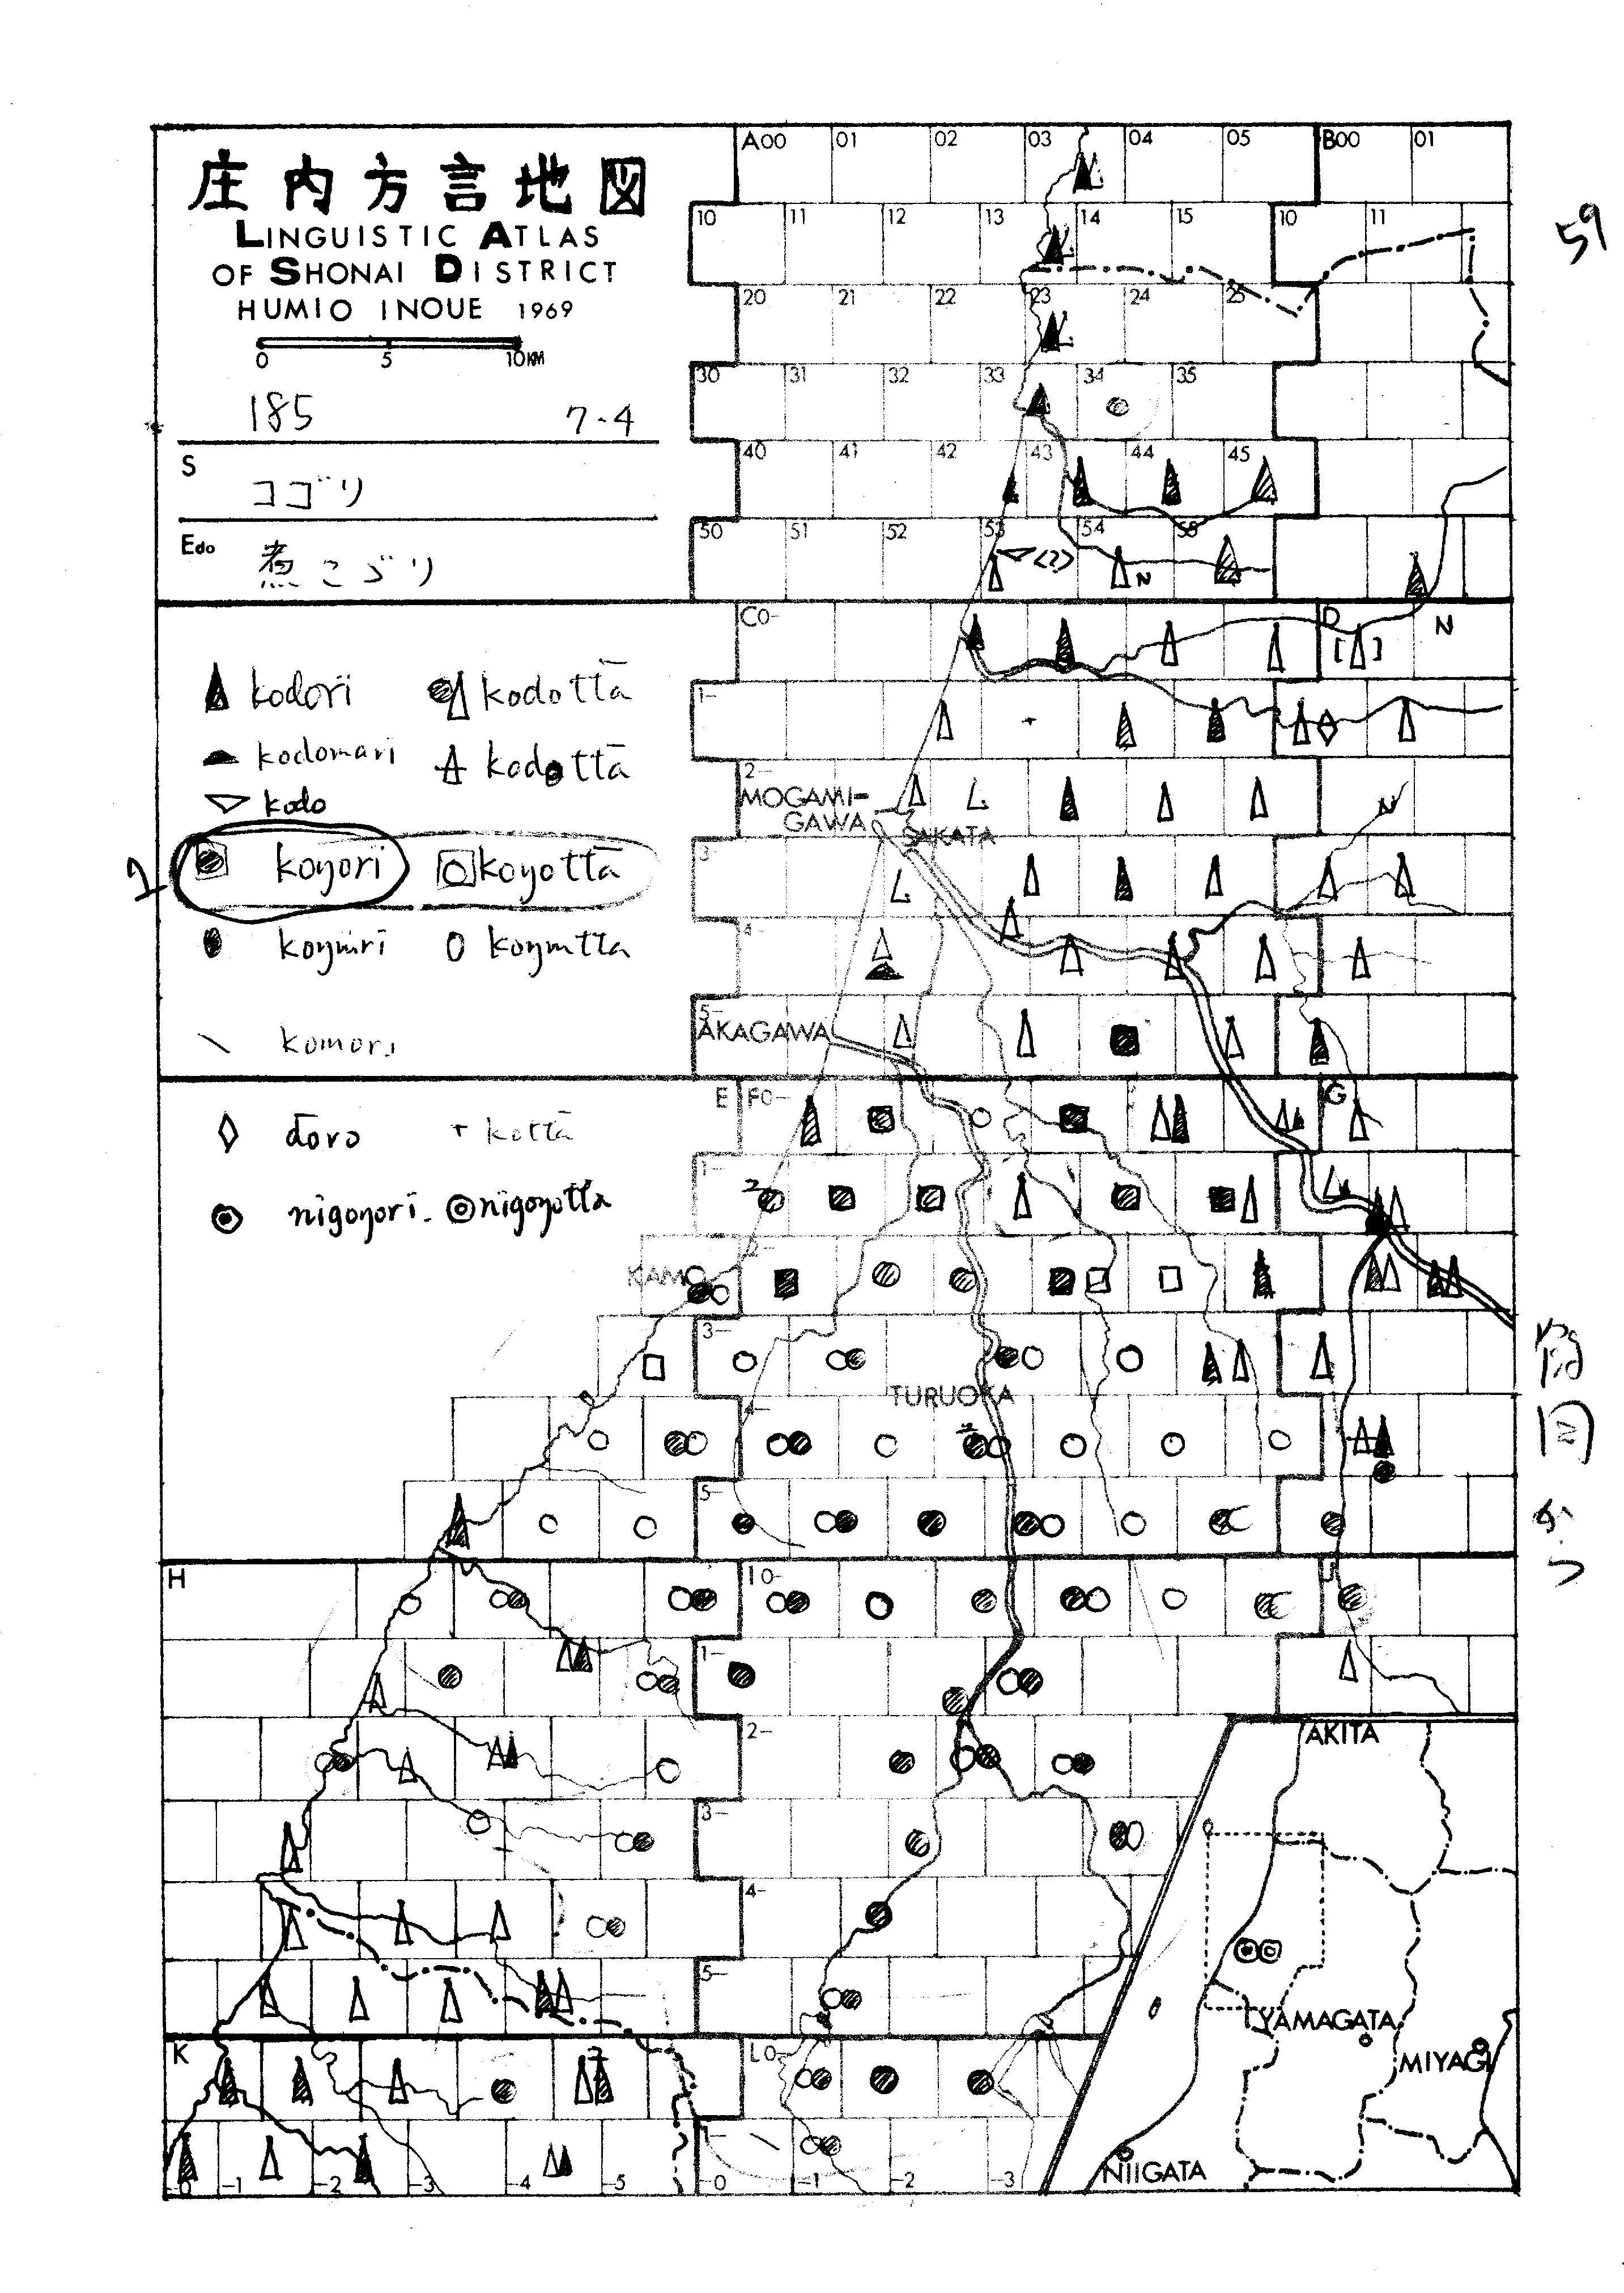 庄内方言地図
LINGUISTIC ATLAS
OF SHONAI DISTRICT
HUMIO INOUE 1969
0 5 10KM
185 7-4
S
コゴリ
Edo 煮こごり
kodori kodottā
kodomari kodottā
kodo
koŋori koŋottā
koŋɯri koŋɯtta
komori
doro kottā
nigoŋori. nigoŋotta
59
A00 01 02 03 04 05 B00 01
10 11 12 13 14 15 10 11
20 21 22 23 24 25
30 31 32 33 34 35
40 41 42 43 44 45
50 51 52 53 54 55
(2)
N
C0- D N
1-
2-
MOGAMI-
GAWA
SAKATA
3
4-
5-
AKAGAWA
E F0- G
1-
2
2-
KAMO
3-
TURUOKA
4-
2
5-
H I0- J
1-
2-
3-
4-
5-
K L0-
1-
-0 -1 -2 -3 -4 -5 -0 -1 -2 -3
AKITA
YAMAGATA
MIYAGI
NIIGATA